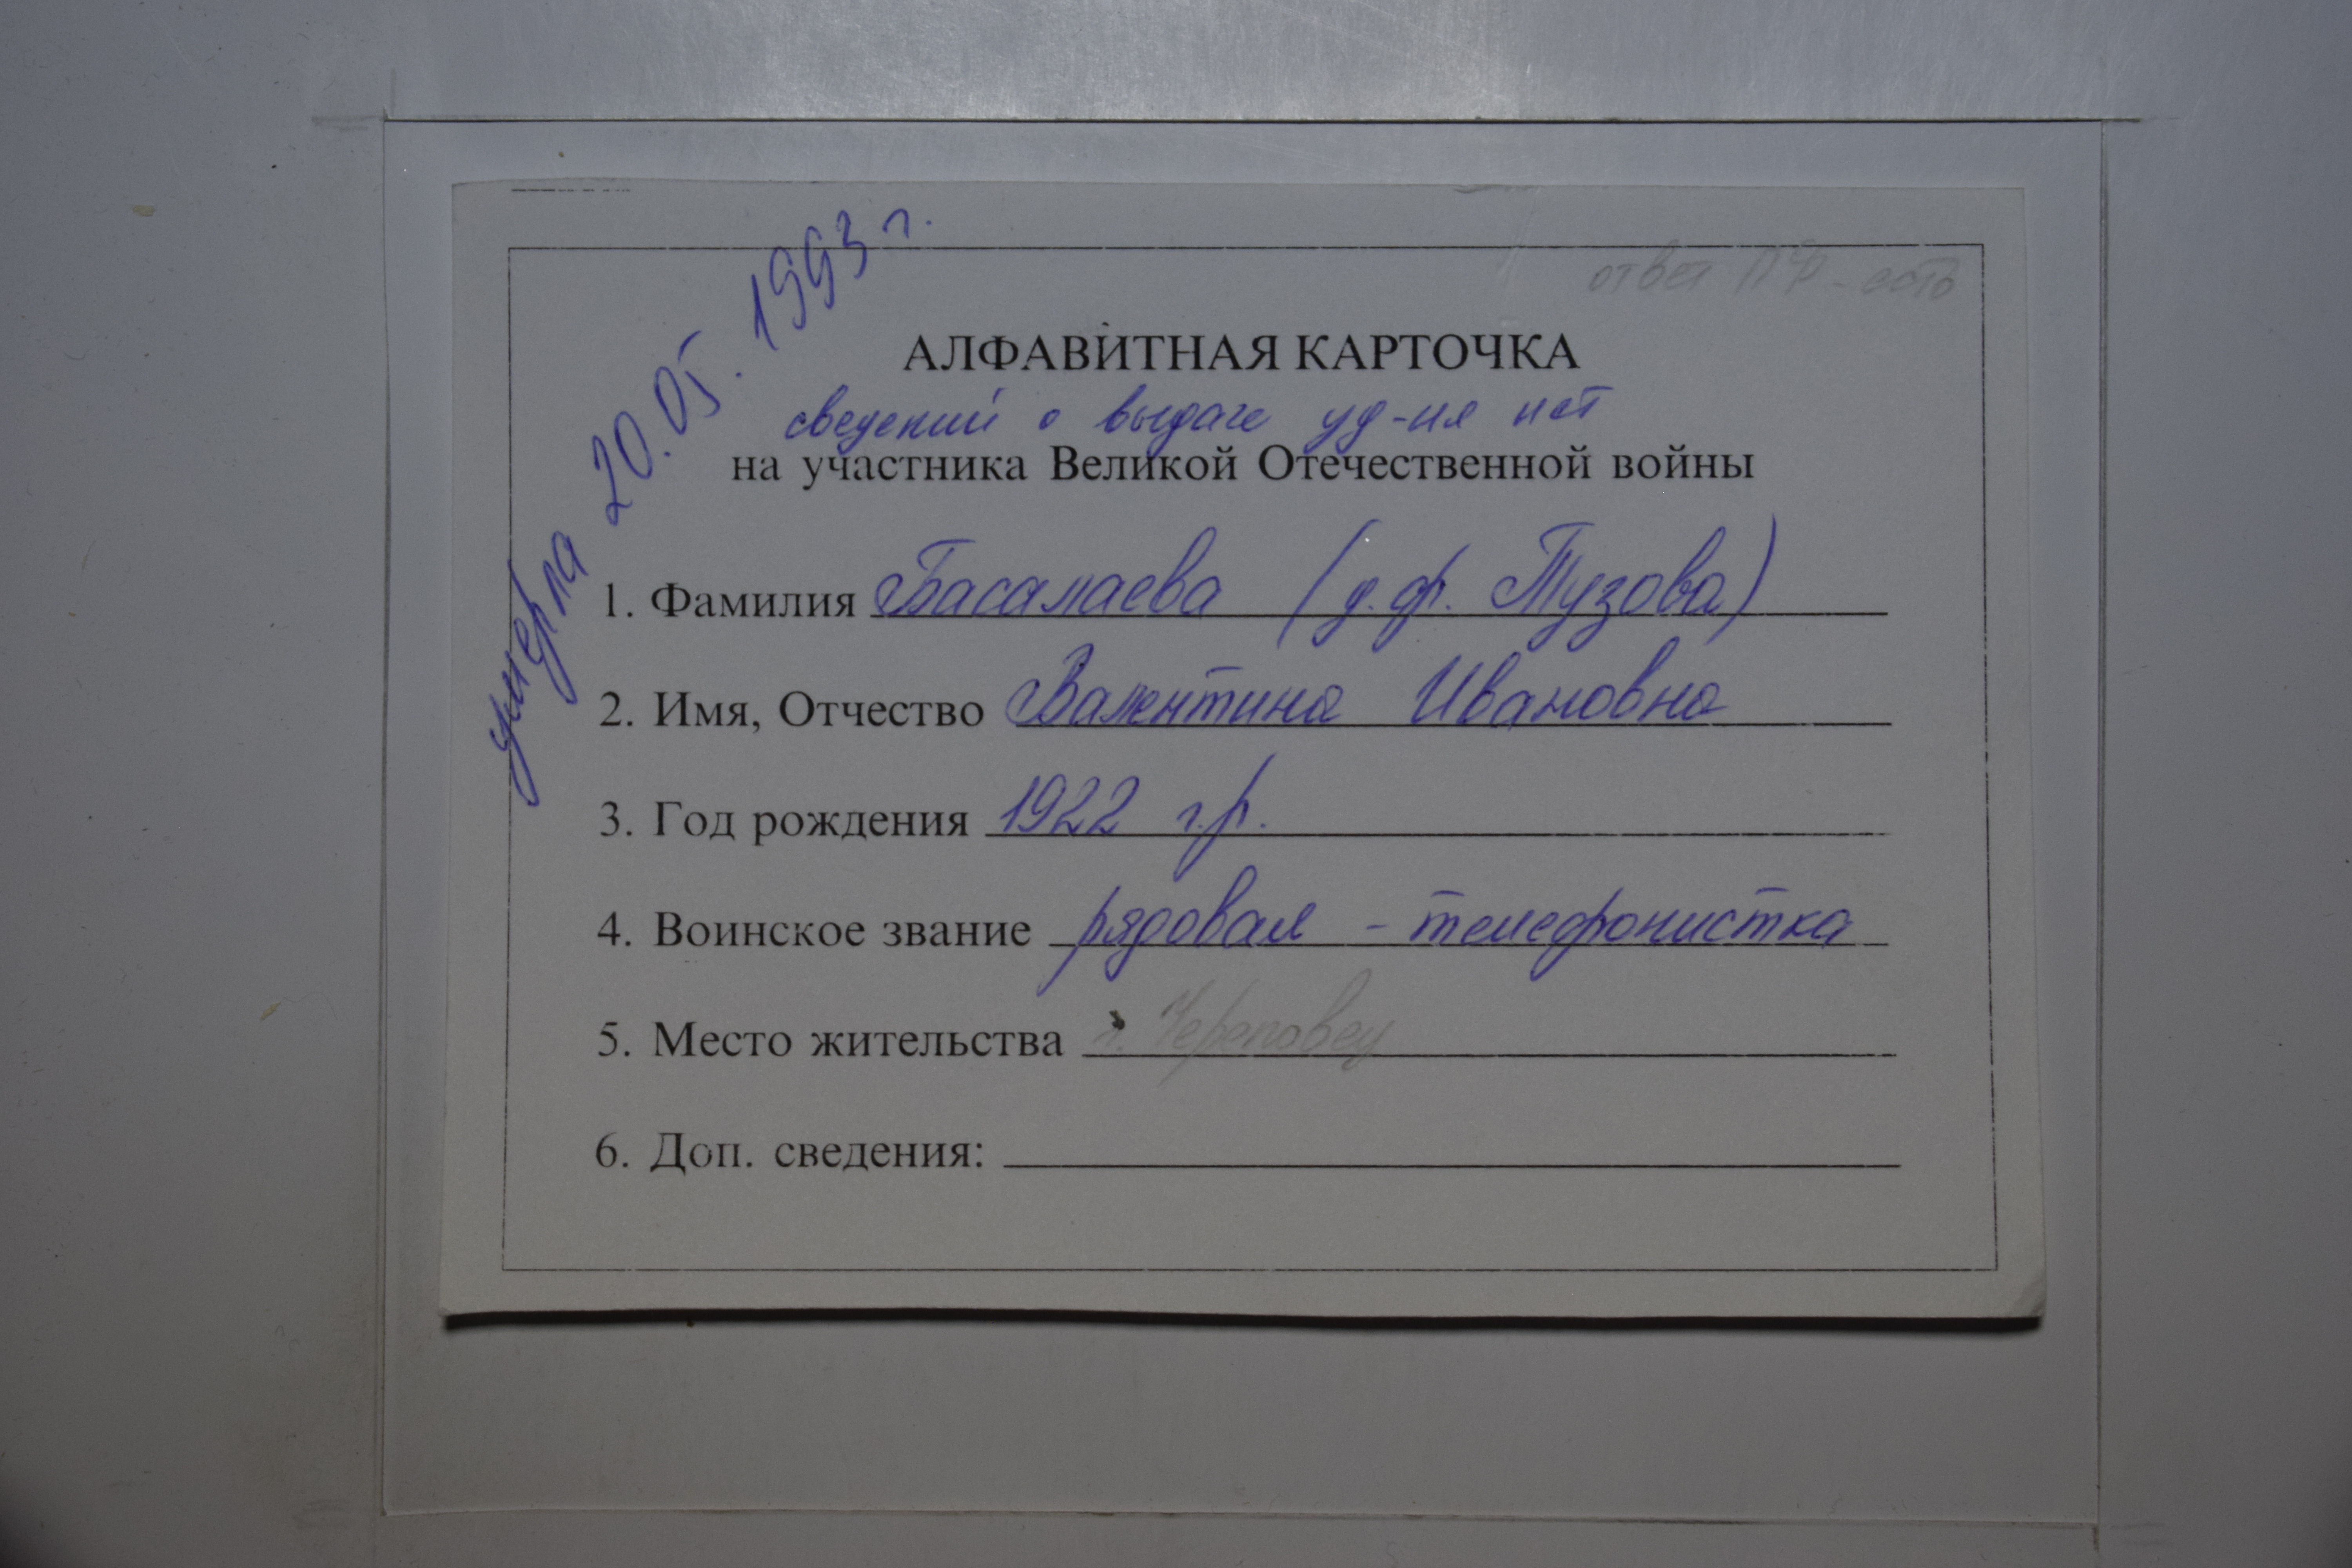 умерла 20.05.1993 г.
ответ ПФ - есть
АЛФАВИТНАЯ КАРТОЧКА
сведений о выдаче уд-ия нет
на участника Великой Отечественной войны
1. Фамилия Басалаева (д.ф. Тузова)
2. Имя, Отчество Валентина Ивановна
3. Год рождения 1922 г.р.
4. Воинское звание рядовая - телефонистка
5. Место жительства г. Череповец
6. Доп. сведения: